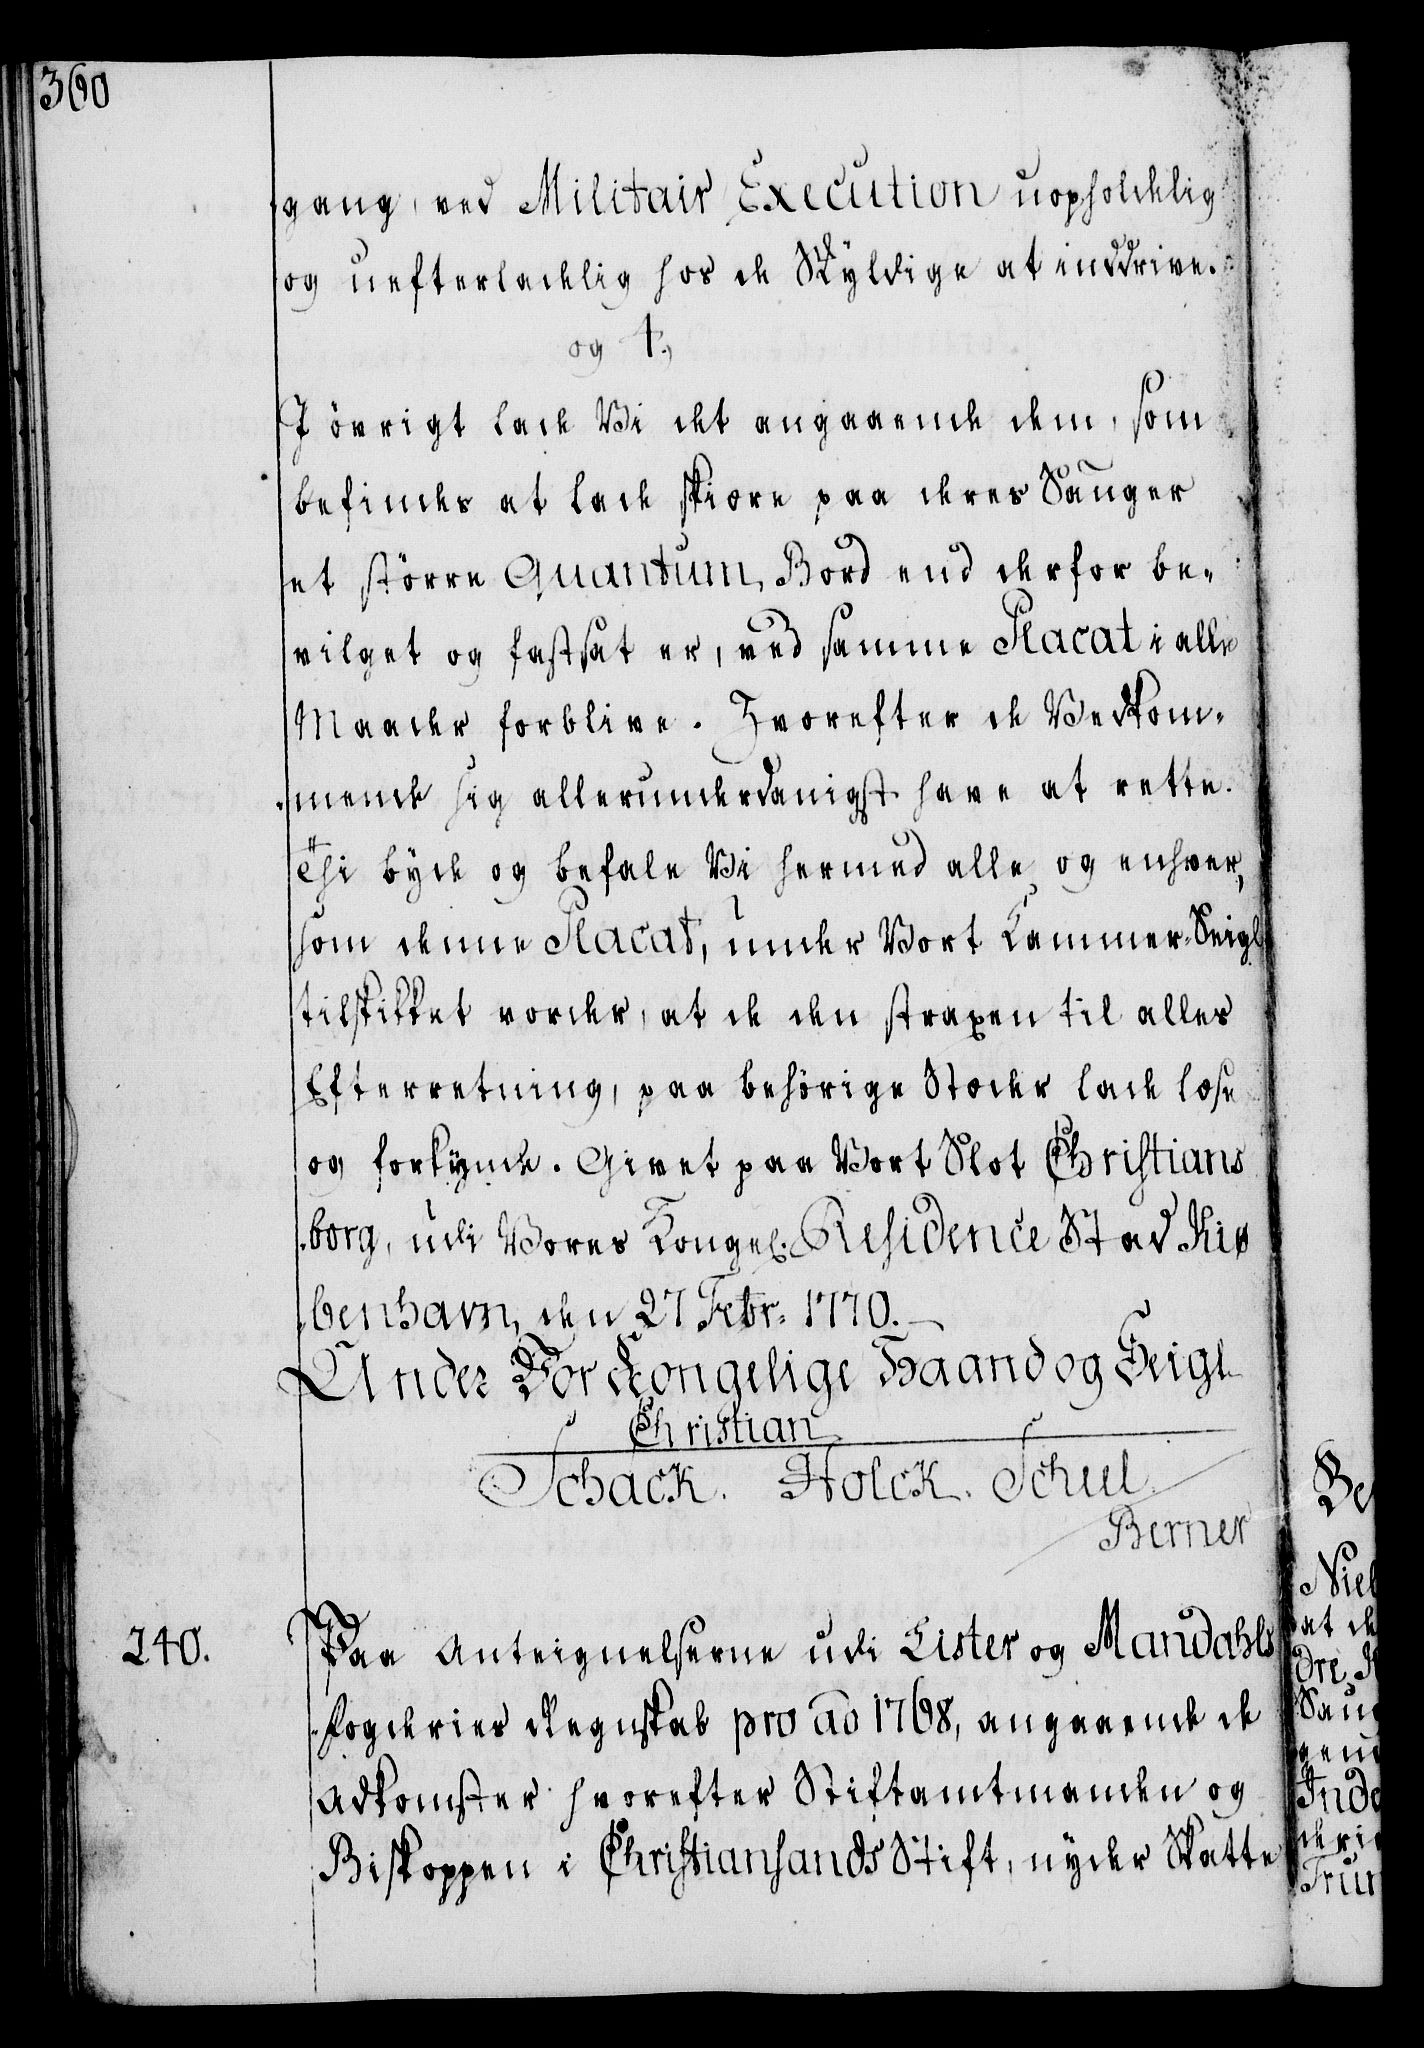 360
gang, ved Militair Execution uopholdelig
og uefterladelig hos de Skyldige at inddrive.
og 4.,
I övrigt lade Vi det angaaende dem, som
befindes at lade skiære paa deres Sauger
et större Quantum, Bord end derfor be-
vilget og fastsat er, ved samme Placat i alle
Maader forblive. Hvorefter de Vedkom-
mende sig allerunderdanigst have at rette.
Thi byde og befale Vi hermed alle og enhver,
som denne Placat, under Vort Cammer-Seigl
tilskikket vorder, at de den straxen til alles
Efterretning, paa behörige Stæder lade læse
og forkynde. Givet paa Vort Slot Christians
borg, udi Vores Kongel: Residence Stad Kiø
benhavn, den 27 Febr. 1770.
Under Vor Kongelige Haand og Seigl
Christian
Schack. Holck. Schul.
Berner
240.
Paa Anteignelserne udi Lister og Mandahls
fogderies Regnskab pro ao 1768, angaaende de
Adkomster hvorefter Stiftamtmanden og
Biskoppen i Christiansands Stift, nyder Skatte
Niel
at de
dre
Sau
Ind